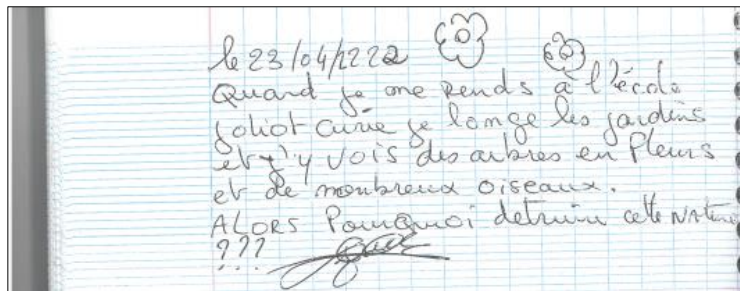 le 23/04/2222
Quand je me rends à l'école
Joliot Curie je longe les jardins
et j'y vois des arbres en Fleurs
et de nombreux oiseaux.
ALORS Pourquoi detruire cette NAture
???